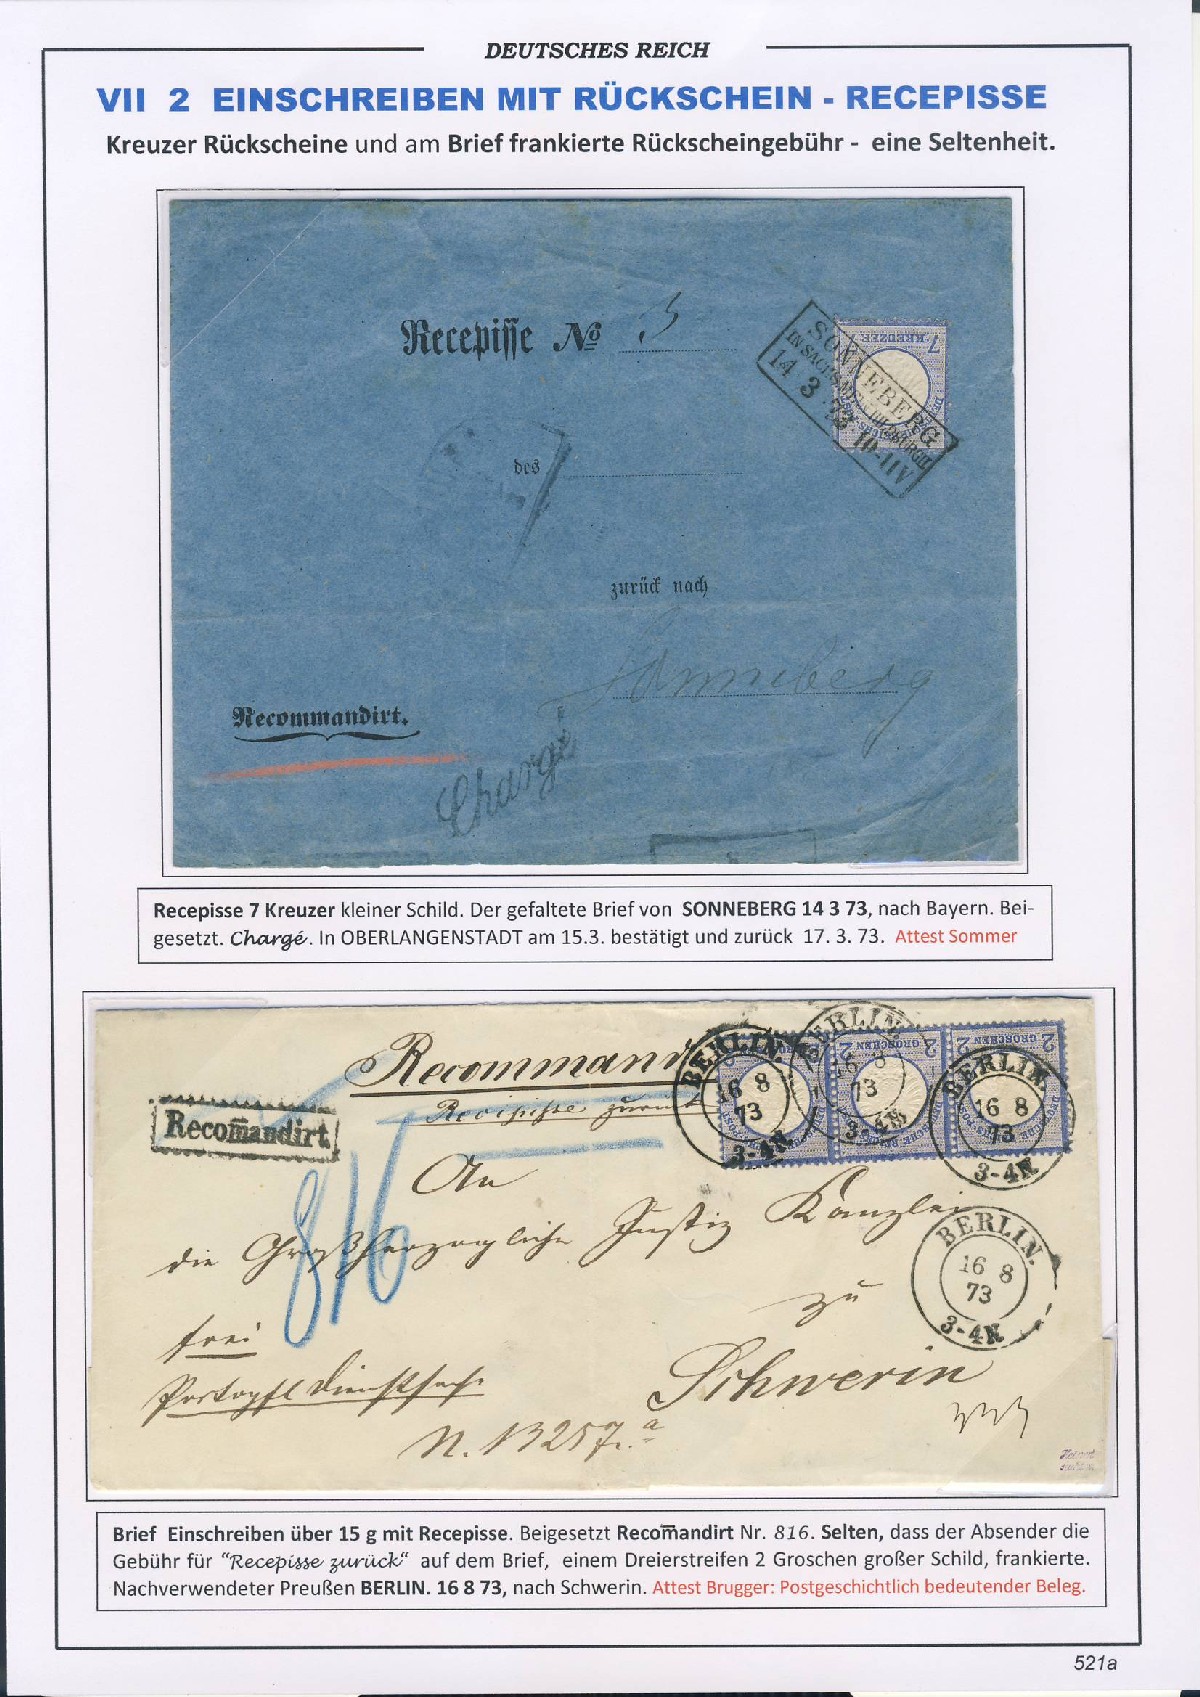 DEUTSCHES REICH
VII 2 EINSCHREIBEN MIT RÜCKSCHEIN - RECEPISSE
Kreuzer Rückscheine und am Brief frankierte Rückscheingebühr - eine Seltenheit.
Recepisse No 3
SONNEBERG
14 3 73 10-11V
7 KREUZER
des
zurück nach
Sonneberg
Recommandirt.
Chargé
Recepisse 7 Kreuzer kleiner Schild. Der gefaltete Brief von SONNEBERG 14 3 73, nach Bayern. Bei-
gesetzt. Chargé. In OBERLANGENSTADT am 15.3. bestätigt und zurück 17. 3. 73. Attest Sommer
Recommand
Recepisse zurück
Recom̅andirt
BERLIN. 16 8 73 3-4N.
BERLIN. 16 8 73 3-4N.
BERLIN. 16 8 73 3-4N.
2 GROSCHEN 2
2 GROSCHEN 2
An
816
die Großherzogliche Justiz Kanzlei
BERLIN. 16 8 73 3-4N.
zu
frei
Schwerin
Portopfl Dienstsache
N. 13257.a
Brief Einschreiben über 15 g mit Recepisse. Beigesetzt Recom̅andirt Nr. 816. Selten, dass der Absender die
Gebühr für "Recepisse zurück" auf dem Brief, einem Dreierstreifen 2 Groschen großer Schild, frankierte.
Nachverwendeter Preußen BERLIN. 16 8 73, nach Schwerin. Attest Brugger: Postgeschichtlich bedeutender Beleg.
521a